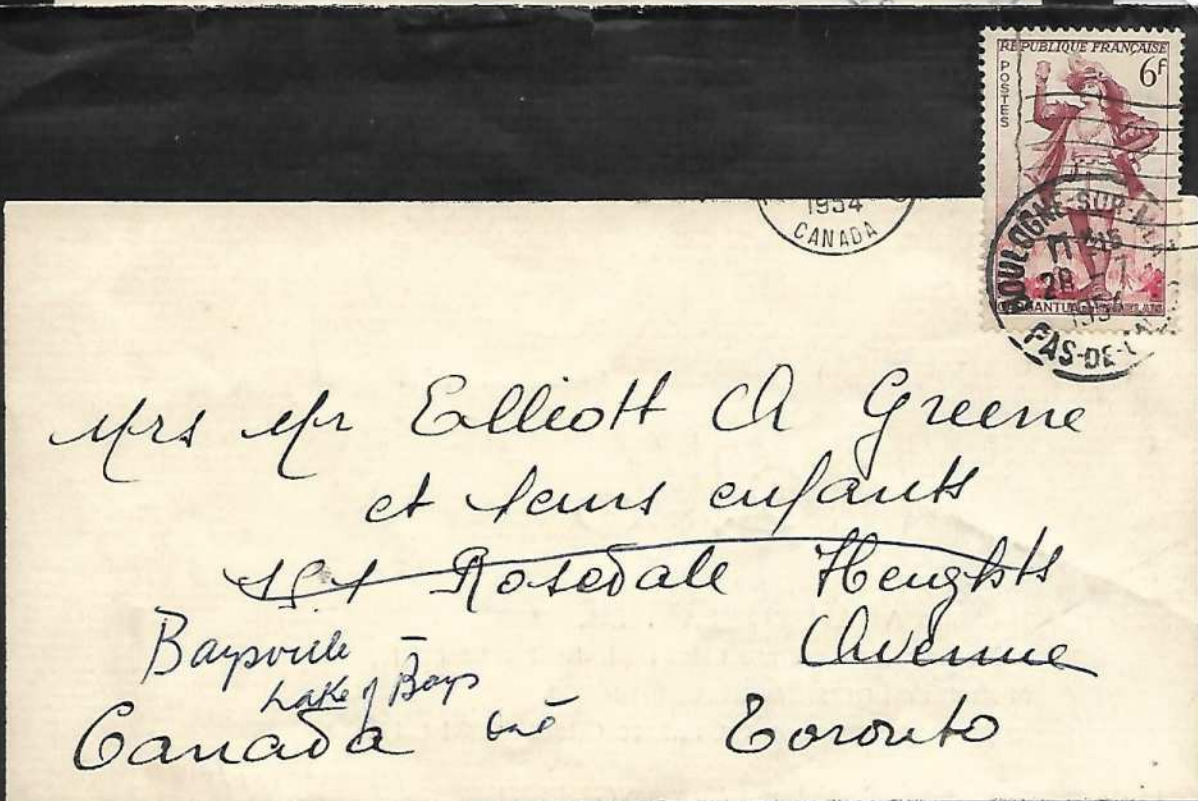 REPUBLIQUE FRANÇAISE
6F
POSTES
1954
CANADA
BOULOGNE-SUR-M
28 - 7
1954
PAS-DE-
Mrs Mr Elliott A Greene
et leurs enfants
Rosedale Heughts
Avenue
Baysville -
Lake of Bays
Canada Toronto